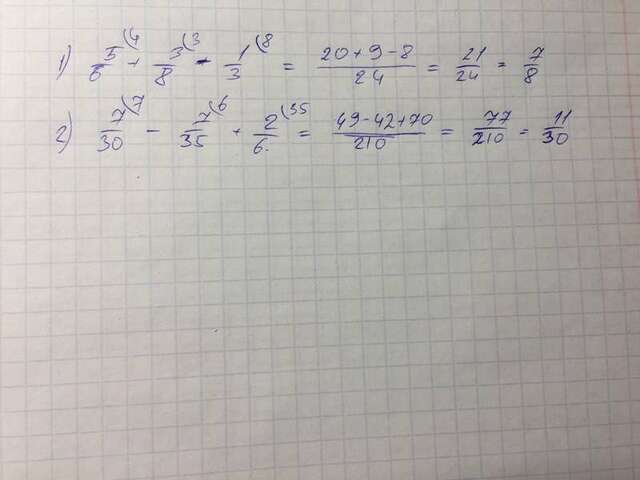 1) 5/6 (4 + 3/8 (3 - 1/3 (8 = 20+9-8/24 = 21/24 = 7/8
2) 7/30 (7 - 7/35 (6 + 2/6 (35 = 49-42+70/210 = 77/210 = 11/30